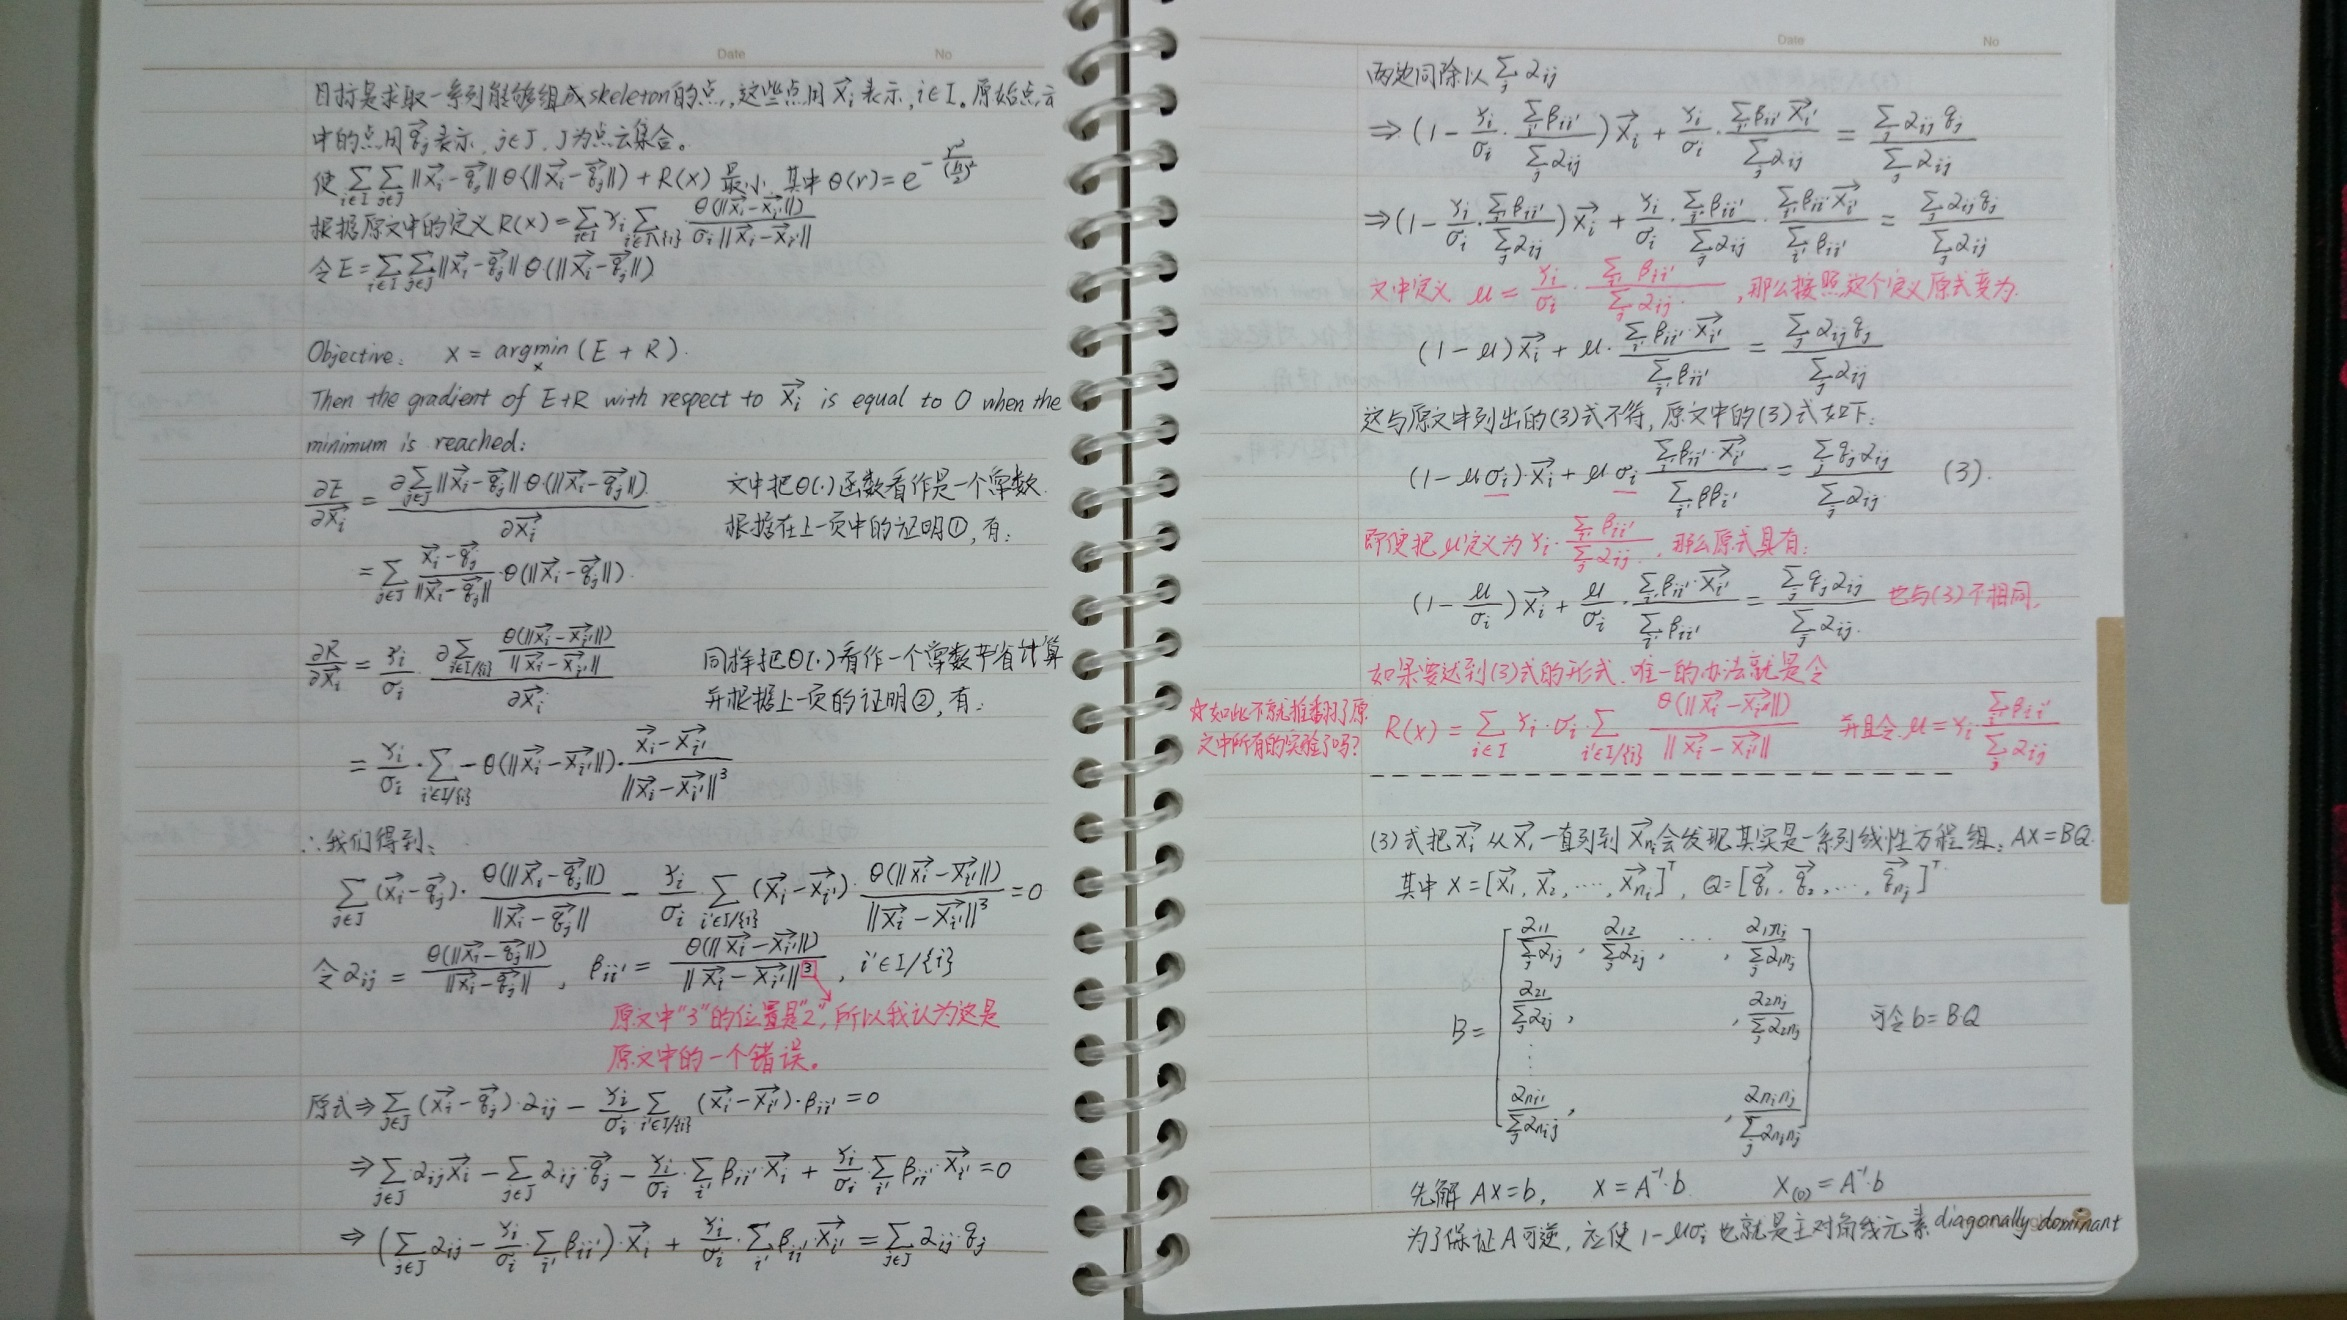 Date No
目标是求取一系列能够组成skeleton的点,这些点用 x⃗ᵢ 表示, i∈I。原始点云
中的点用 q⃗ⱼ 表示, j∈J, J为点云集合。
使 Σ_{i∈I} Σ_{j∈J} ‖x⃗ᵢ-q⃗ⱼ‖θ(‖x⃗ᵢ-q⃗ⱼ‖) + R(x) 最小, 其中 θ(r) = e^{-r²/(h/2)²}
根据原文中的定义 R(x) = Σ_{i∈I} γᵢ Σ_{i∈I\{i}} θ(‖x⃗ᵢ-x⃗ᵢ'‖) / (σᵢ‖x⃗ᵢ-x⃗ᵢ'‖)
令 E = Σ_{i∈I} Σ_{j∈J} ‖x⃗ᵢ-q⃗ⱼ‖θ(‖x⃗ᵢ-q⃗ⱼ‖)
Objective: X = argmin_x (E + R).
Then the gradient of E+R with respect to x⃗ᵢ is equal to 0 when the
minimum is reached:
∂E/∂x⃗ᵢ = ∂Σ_{j∈J} ‖x⃗ᵢ-q⃗ⱼ‖θ(‖x⃗ᵢ-q⃗ⱼ‖) / ∂x⃗ᵢ = 文中把θ(·)函数看作是一个常数.
根据在上一页中的证明①,有:
= Σ_{j∈J} (x⃗ᵢ-q⃗ⱼ)/‖x⃗ᵢ-q⃗ⱼ‖ · θ(‖x⃗ᵢ-q⃗ⱼ‖).
∂R/∂x⃗ᵢ = γᵢ/σᵢ · ∂Σ_{i∈I/{i}} [θ(‖x⃗ᵢ-x⃗ᵢ'‖)/‖x⃗ᵢ-x⃗ᵢ'‖] / ∂x⃗ᵢ 同样把θ(·)看作一个常数节省计算
并根据上一页的证明②,有:
= γᵢ/σᵢ · Σ_{i'∈I/{i}} -θ(‖x⃗ᵢ-x⃗ᵢ'‖) · (x⃗ᵢ-x⃗ᵢ')/‖x⃗ᵢ-x⃗ᵢ'‖³
∴我们得到:
Σ_{j∈J} (x⃗ᵢ-q⃗ⱼ) · θ(‖x⃗ᵢ-q⃗ⱼ‖)/‖x⃗ᵢ-q⃗ⱼ‖ - γᵢ/σᵢ · Σ_{i'∈I/{i}} (x⃗ᵢ-x⃗ᵢ') · θ(‖x⃗ᵢ-x⃗ᵢ'‖)/‖x⃗ᵢ-x⃗ᵢ'‖³ = 0
令 αᵢⱼ = θ(‖x⃗ᵢ-q⃗ⱼ‖)/‖x⃗ᵢ-q⃗ⱼ‖, βᵢᵢ' = θ(‖x⃗ᵢ-x⃗ᵢ'‖)/‖x⃗ᵢ-x⃗ᵢ'‖³, i'∈I/{i}
原文中"3"的位置是"2",所以我认为这是
原文中的一个错误。
原式 ⇒ Σ_{j∈J} (x⃗ᵢ-q⃗ⱼ)·αᵢⱼ - γᵢ/σᵢ Σ_{i'∈I/{i}} (x⃗ᵢ-x⃗ᵢ')·βᵢᵢ' = 0
⇒ Σ_{j∈J} αᵢⱼx⃗ᵢ - Σ_{j∈J} αᵢⱼ·q⃗ⱼ - γᵢ/σᵢ · Σ_{i'} βᵢᵢ'·x⃗ᵢ + γᵢ/σᵢ · Σ_{i'} βᵢᵢ'·x⃗ᵢ' = 0
⇒ (Σ_{j∈J} αᵢⱼ - γᵢ/σᵢ · Σ_{i'} βᵢᵢ')·x⃗ᵢ + γᵢ/σᵢ · Σ_{i'} βᵢᵢ'·x⃗ᵢ' = Σ_{j∈J} αᵢⱼ·qⱼ
Date No
两边同除以 Σⱼ αᵢⱼ
⇒ (1 - γᵢ/σᵢ · Σ_{i'}βᵢᵢ'/Σⱼαᵢⱼ)x⃗ᵢ + γᵢ/σᵢ · Σ_{i'}βᵢᵢ'x⃗ᵢ'/Σⱼαᵢⱼ = Σⱼαᵢⱼqⱼ/Σⱼαᵢⱼ
⇒ (1 - γᵢ/σᵢ · Σ_{i'}βᵢᵢ'/Σⱼαᵢⱼ)x⃗ᵢ + γᵢ/σᵢ · Σ_{i'}βᵢᵢ'/Σⱼαᵢⱼ · Σ_{i'}βᵢᵢ'x⃗ᵢ'/Σ_{i'}βᵢᵢ' = Σⱼαᵢⱼqⱼ/Σⱼαᵢⱼ
文中定义 μ = γᵢ/σᵢ · Σ_{i'}βᵢᵢ'/Σⱼαᵢⱼ, 那么按照这个定义原式变为.
(1-μ)x⃗ᵢ + μ · Σ_{i'}βᵢᵢ'·x⃗ᵢ'/Σ_{i'}βᵢᵢ' = Σⱼαᵢⱼqⱼ/Σⱼαᵢⱼ
这与原文中列出的(3)式不符, 原文中的(3)式如下:
(1-μσᵢ)·x⃗ᵢ + μσᵢ Σ_{i'}βᵢᵢ'·x⃗ᵢ'/Σ_{i'}ββᵢ' = Σⱼqⱼαᵢⱼ/Σⱼαᵢⱼ (3).
即便把μ定义为 γᵢ · Σ_{i'}βᵢᵢ'/Σⱼαᵢⱼ, 那么原式具有:
(1 - μ/σᵢ)x⃗ᵢ + μ/σᵢ · Σ_{i'}βᵢᵢ'·x⃗ᵢ'/Σ_{i'}βᵢᵢ' = Σⱼqⱼαᵢⱼ/Σⱼαᵢⱼ 也与(3)不相同.
如果要达到(3)式的形式, 唯一的办法就是令
R(x) = Σ_{i∈I} γᵢ·σᵢ·Σ_{i'∈I/{i}} θ(‖x⃗ᵢ-x⃗ᵢ'‖)/‖x⃗ᵢ-x⃗ᵢ'‖ 并且令 μ = γᵢ · Σ_{i'}βᵢᵢ'/Σⱼαᵢⱼ
☆如此不就推翻了原
文中所有的实验了吗?
(3)式把 x⃗ᵢ 从 x⃗₁ 一直列到 x⃗ₙᵢ 会发现其实是一系列线性方程组: AX=BQ.
其中 X=[x⃗₁, x⃗₂, ···, x⃗ₙᵢ]ᵀ, Q=[q⃗₁, q⃗₂, ···, q⃗ₙⱼ]ᵀ
B = [ α₁₁/Σⱼα₁ⱼ, α₁₂/Σⱼα₂ⱼ, ···, α₁ₙⱼ/Σⱼα₁ₙⱼ
α₂₁/Σⱼα₂ⱼ, , α₂ₙⱼ/Σⱼα₂ₙⱼ 可令 b=BQ
⋮
αₙᵢ₁/Σⱼαₙᵢⱼ, , αₙᵢₙⱼ/Σⱼαₙᵢₙⱼ ]
先解 AX=b, X=A⁻¹·b X₍₀₎=A⁻¹·b
为了保证A可逆, 应使 1-μσᵢ 也就是主对角线元素diagonally dominant